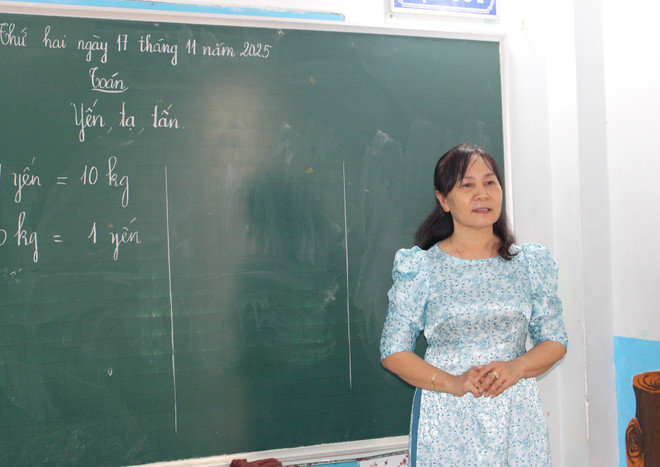 Thứ hai ngày 17 tháng 11 năm 2025
Toán
Yến, tạ, tấn.
yến = 10 kg
kg = 1 yến